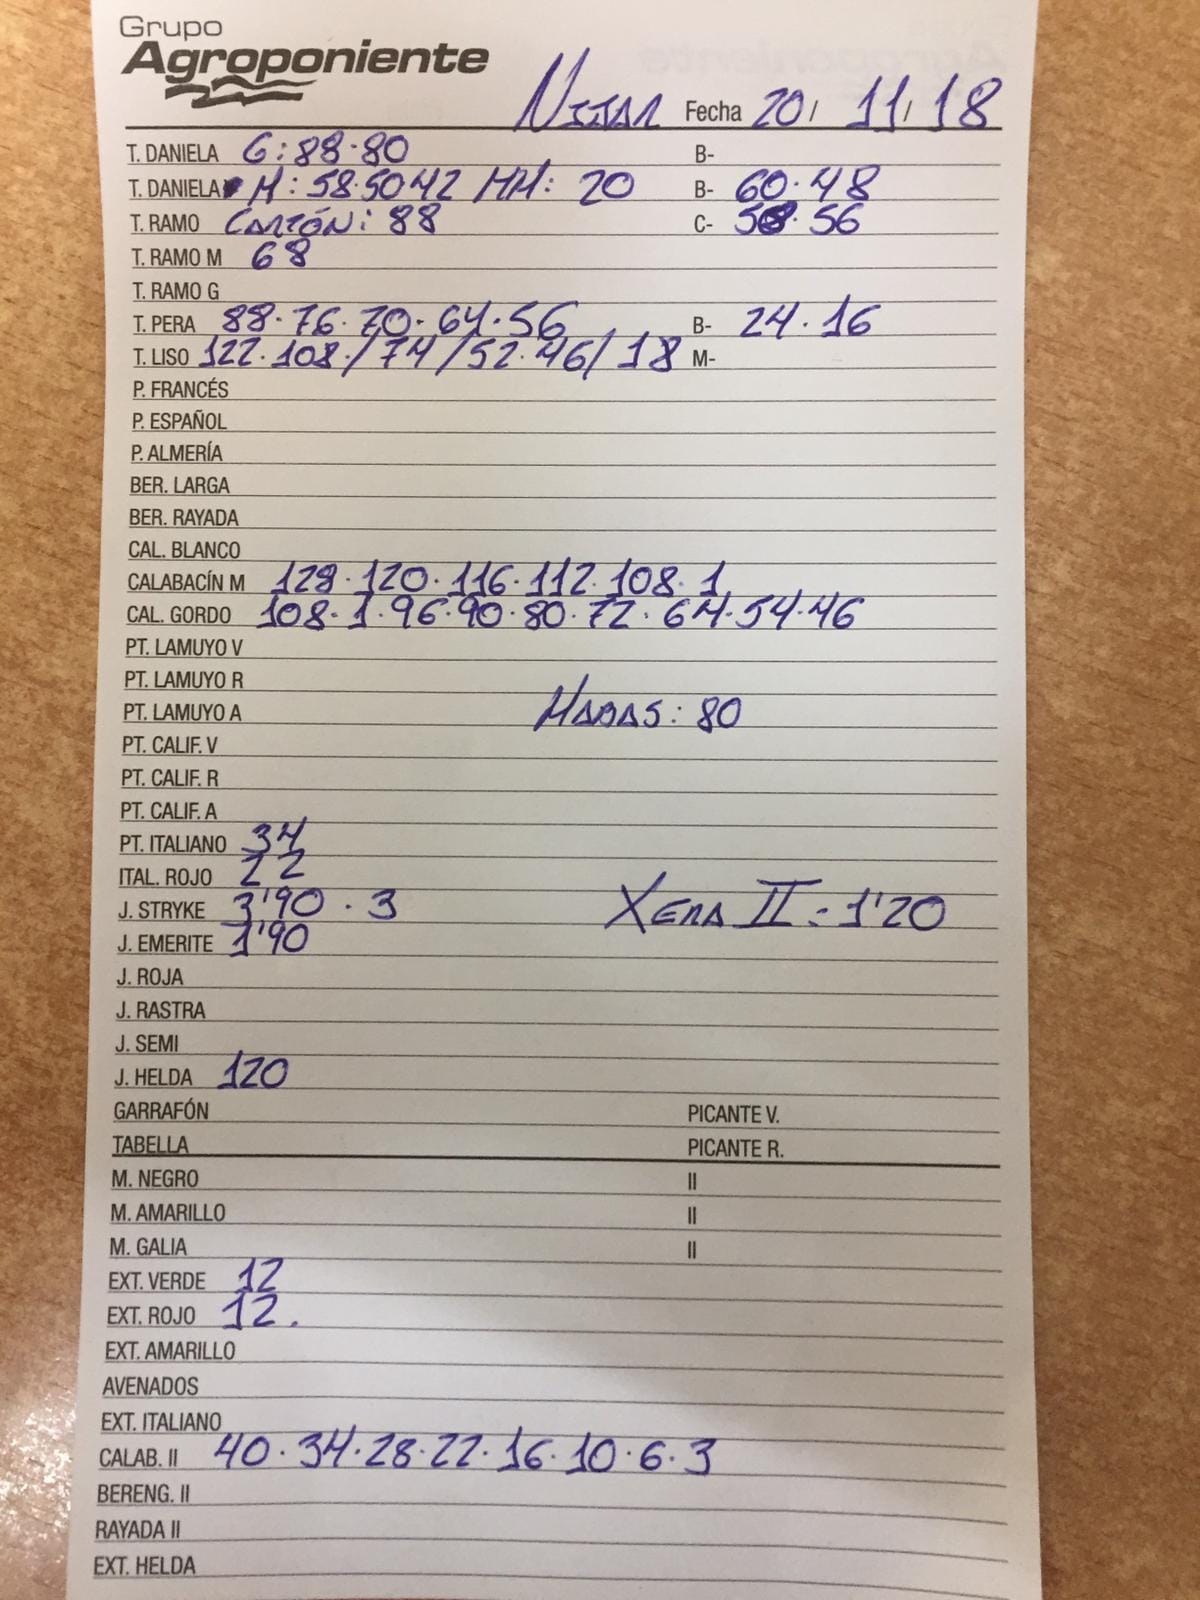 Grupo
Agroponiente
NIJAR Fecha 20/ 11/ 18
T. DANIELA G: 88·80 B-
T. DANIELA M: 58·50 42 MM: 20 B- 60·48
T. RAMO CARTÓN: 88 C- 58·56
T. RAMO M 68
T. RAMO G
T. PERA 88·76·70·64·56 B- 24·16
T. LISO 122·108·/74/52·46/18 M-
P. FRANCÉS
P. ESPAÑOL
P. ALMERÍA
BER. LARGA
BER. RAYADA
CAL. BLANCO
CALABACÍN M 128·120·116·112·108·1
CAL. GORDO 108·1·96·90·80·72·64·54·46
PT. LAMUYO V
PT. LAMUYO R
PT. LAMUYO A HABAS: 80
PT. CALIF. V
PT. CALIF. R
PT. CALIF. A
PT. ITALIANO 34
ITAL. ROJO 22
J. STRYKE 3'90 · 3 XERA II = 1'20
J. EMERITE 1'90
J. ROJA
J. RASTRA
J. SEMI
J. HELDA 120
GARRAFÓN PICANTE V.
TABELLA PICANTE R.
M. NEGRO II
M. AMARILLO II
M. GALIA II
EXT. VERDE 12
EXT. ROJO 12.
EXT. AMARILLO
AVENADOS
EXT. ITALIANO
CALAB. II 40·34·28·22·16·10·6·3
BERENG. II
RAYADA II
EXT. HELDA